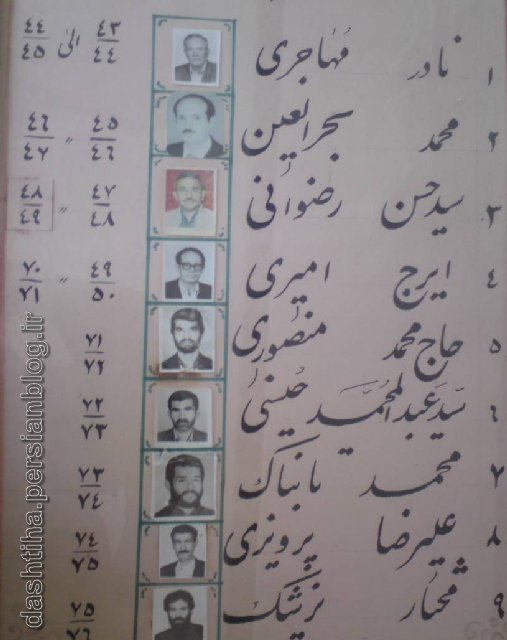 ۱ نادر مهاجری ۴۳/۴۴ الی ۴۴/۴۵
۲ محمد بحرالعین ۴۵/۴۶ " ۴۶/۴۷
۳ سیدحسن رضوانی ۴۷/۴۸ " ۴۸/۴۹
۴ ایرج امیری ۴۹/۵۰ " ۷۰/۷۱
۵ حاج محمد منصوری ۷۱/۷۲
۶ سیدعبدالمحمد حسینی ۷۲/۷۳
۷ محمد تابناک ۷۳/۷۴
۸ علیرضا پرویزی ۷۴/۷۵
۹ مختار نزیشک ۷۵/۷۶
dashtiha.persianblog.ir